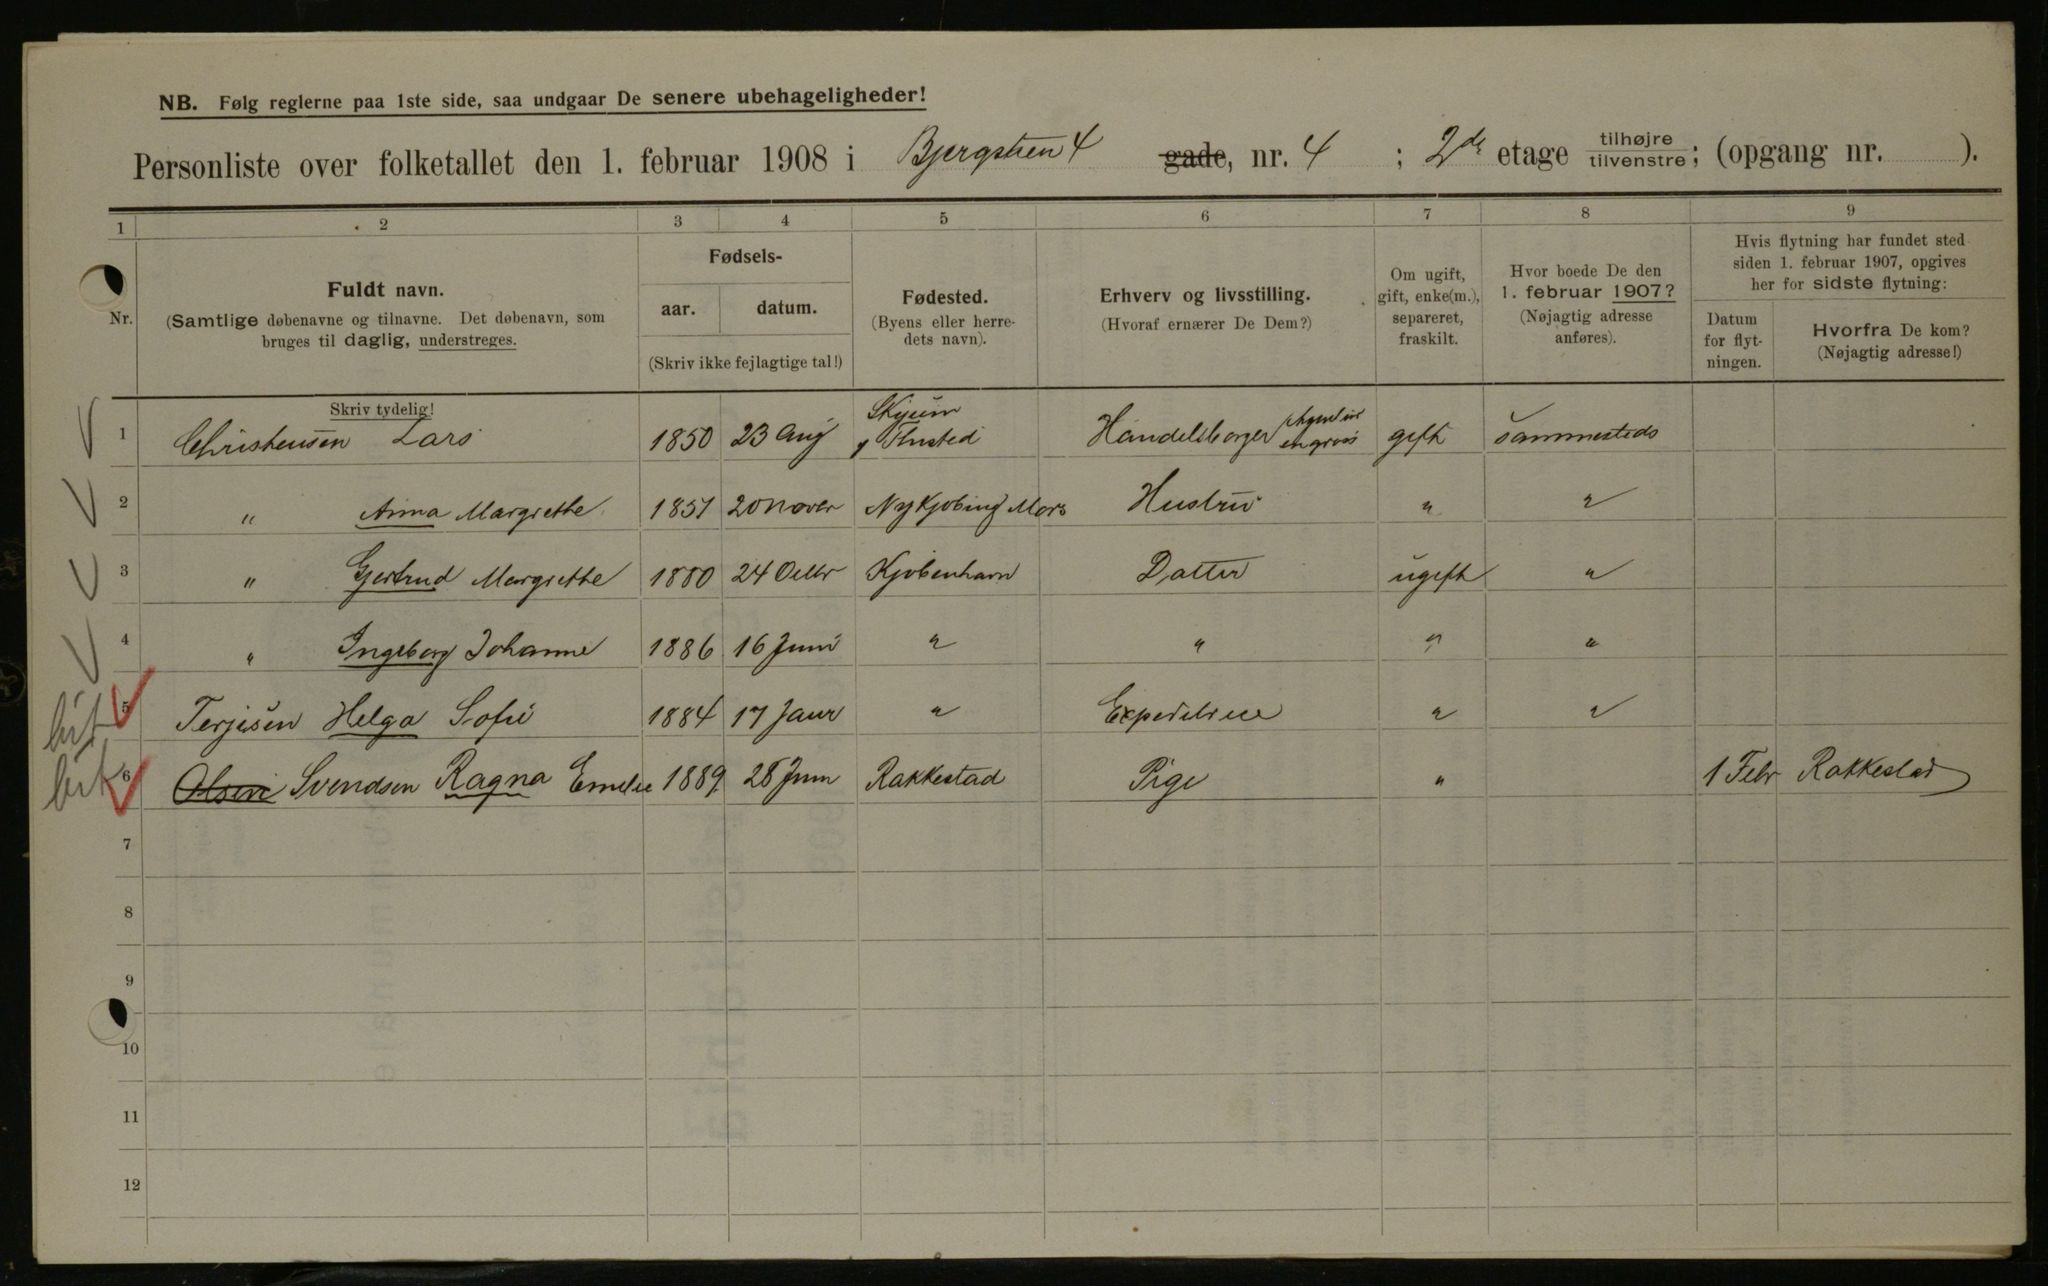 NB. Følg reglerne paa 1ste side, saa undgaar De senere ubehageligheder!
Personliste over folketallet den 1. februar 1908 i Bjergstien 4 gade, nr. 4 ; 2de etage tilhøjre tilvenstre; (opgang nr. ).
1 2 3 4 5 6 7 8 9
Nr.
Fuldt navn.
(Samtlige døbenavne og tilnavne. Det døbenavn, som
bruges til daglig, understreges.
Skriv tydelig!
Fødsels-
aar. datum.
(Skriv ikke fejlagtige tal!)
Fødested.
(Byens eller herre-
dets navn).
Erhverv og livsstilling.
(Hvoraf ernærer De Dem?)
Om ugift,
gift, enke(m.),
separeret,
fraskilt.
Hvor boede De den
1. februar 1907?
(Nøjagtig adresse
anføres).
Hvis flytning har fundet sted
siden 1. februar 1907, opgives
her for sidste flytning:
Datum
for flyt-
ningen.
Hvorfra De kom?
(Nøjagtig adresse!)
1 Christensen Lars 1850 23 Aug Skjum Handelsborger en gros gift sammesteds
2 " Anna Margrethe 1851 20 Nover Nykjøbing Mors Hustru " "
3 " Gjertrud Margrethe 1880 24 Octbr Kjøbenhavn Datter ugift "
4 " Ingeborg Johanne 1886 16 Juni " " " "
5 Terjesen Helga Sofie 1884 17 Janr " Expeditrice " "
6 Olsen Svendsen Ragna Emelie 1889 28 Juni Rakkestad Pige " 1 Febr Rakkestad
7
8
9
10
11
12